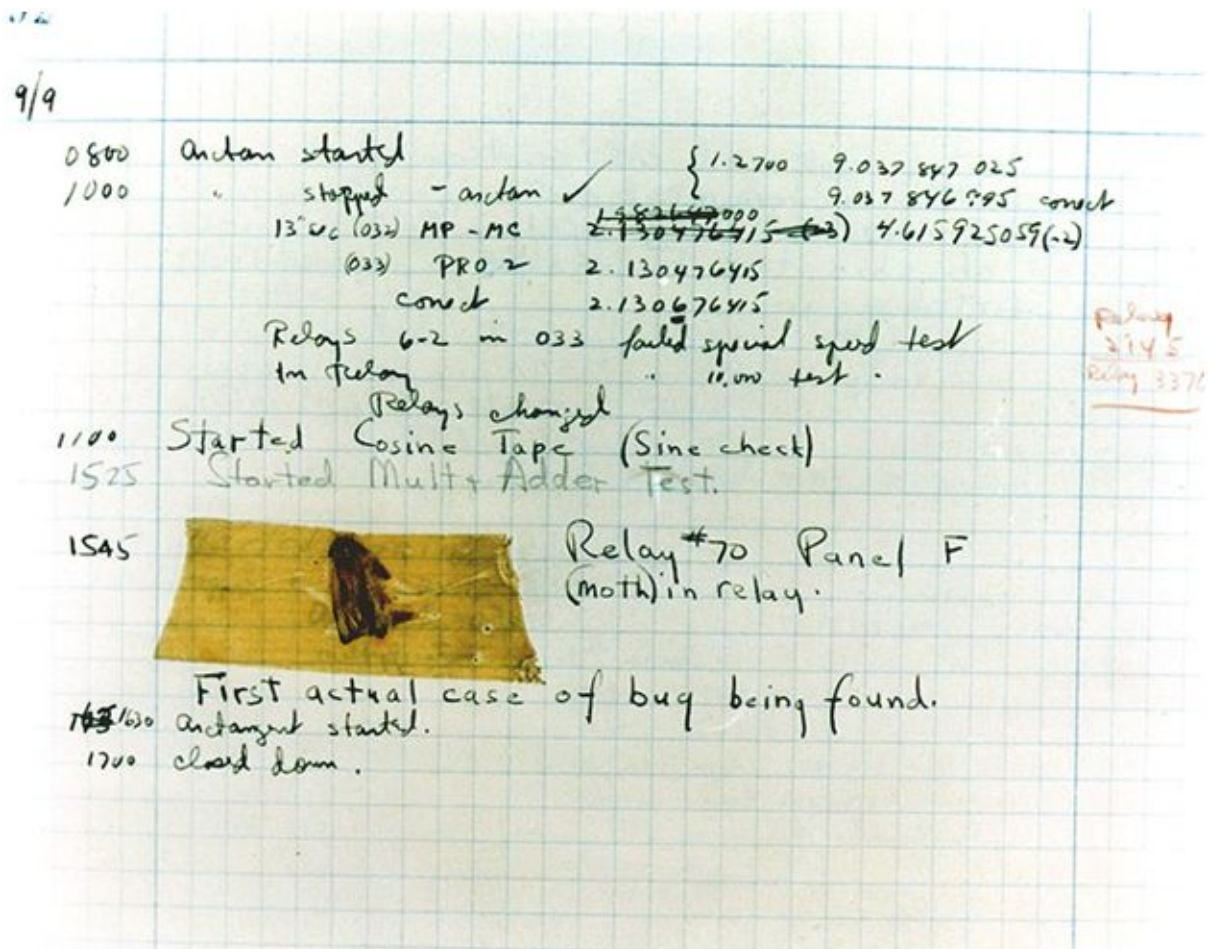 9/9
0800 arctan started { 1.2700 9.037 847 025
1000 " stopped - arctan ✓ 9.037 846 995 correct
13"uc (032) MP - MC 2.130476415 (-3) 4.615925059(-2)
(033) PRO 2 2.130476415
correct 2.130676415
Relays 6-2 in 033 failed special speed test
in relay " 10.000 test .
Relay
2145
Relay 3370
Relays changed
1100 Started Cosine Tape (Sine check)
1525 Started Mult + Adder Test.
1545 Relay #70 Panel F
(moth) in relay.
First actual case of bug being found.
1630 arctangent started.
1700 closed down.